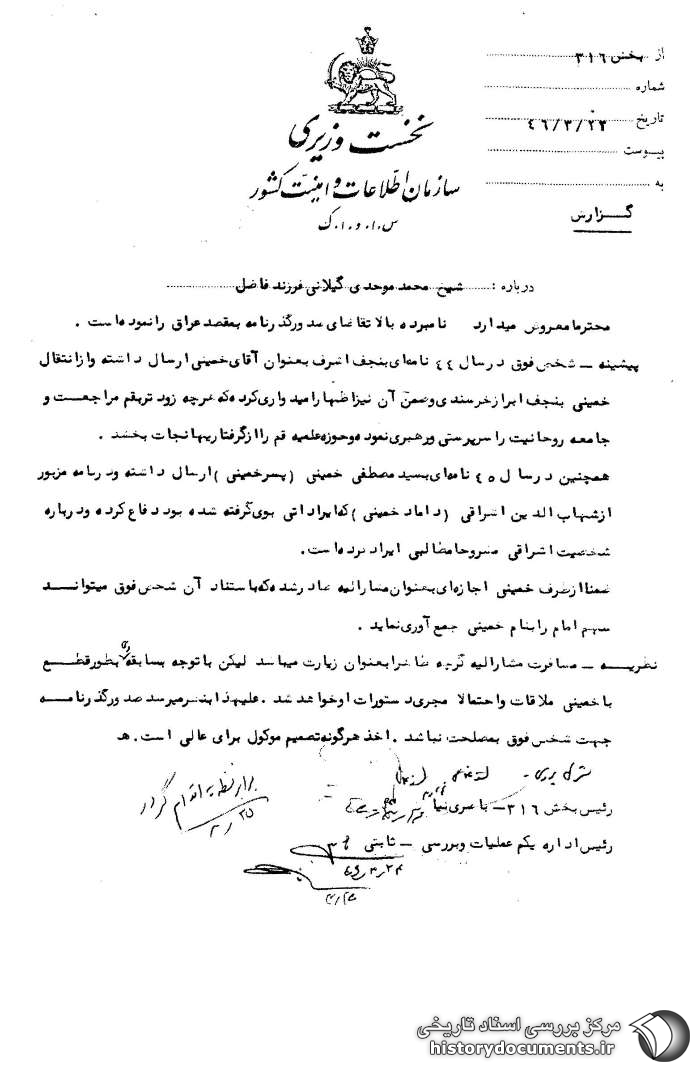 از بخش ۳۱۶
شماره
تاریخ ۴۶/۳/۲۳
پیوست
به
گزارش
نخست وزیری
سازمان اطلاعات و امنیت کشور
س.ا.و.ا.ک
درباره : شیخ محمد موحدی گیلانی فرزند فاضل
محترما معروض میدارد نامبرده بالا تقاضای صدور گذرنامه بمقصد عراق را نموده است .
پیشینه – شخص فوق در سال ۴۴ نامه‌ای بنجف اشرف بعنوان آقای خمینی ارسال داشته و از انتقال
خمینی بنجف ابراز خرسندی و ضمن آن نیز اظهار امیدواری کرده که هرچه زود تر بقم مراجعت و
جامعه روحانیت را سرپرستی و رهبری نموده و حوزه علمیه قم را از گرفتاریها نجات بخشد .
همچنین در سال ۴۵ نامه‌ای بسید مصطفی خمینی (پسر خمینی) ارسال داشته و در نامه مزبور
از شهاب الدین اشراقی (داماد خمینی) که ایراداتی بوی گرفته شده بود دفاع کرده و درباره
شخصیت اشراقی مشروحا مطالبی ایراد نرده است.
ضمنا از طرف خمینی اجازه‌ای بعنوان مشارالیه صادر شده که باستناد آن شخص فوق میتواند
سهم امام را بنام خمینی جمع آوری نماید .
نظریه – مسافرت مشارالیه گرچه ظاهرا بعنوان زیارت میباشد لیکن با توجه بسابقه بطور قطع
با خمینی ملاقات و احتمالا مجری دستورات او خواهد شد . علیهذا بنظر میرسد صدور گذرنامه
جهت شخص فوق بمصلحت نباشد . اخذ هرگونه تصمیم موکول برای عالی است. هـ
برابر نظریه اقدام گردد
۳/۲۵
رئیس بخش ۳۱۶ –
رئیس اداره یکم عملیات و بررسی – ثابتی
۴۶/۳/۲۴
مرکز بررسی اسناد تاریخی
historydocuments.ir